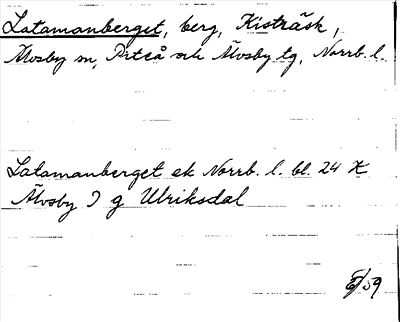 Latamanberget, berg, Kisträsk,
Älvsby sn, Piteå och Älvsby tg, Norrb. l.
Latamanberget ek Norrb. l. bl. 24 X
Älvsby I g Ulriksdal
/59